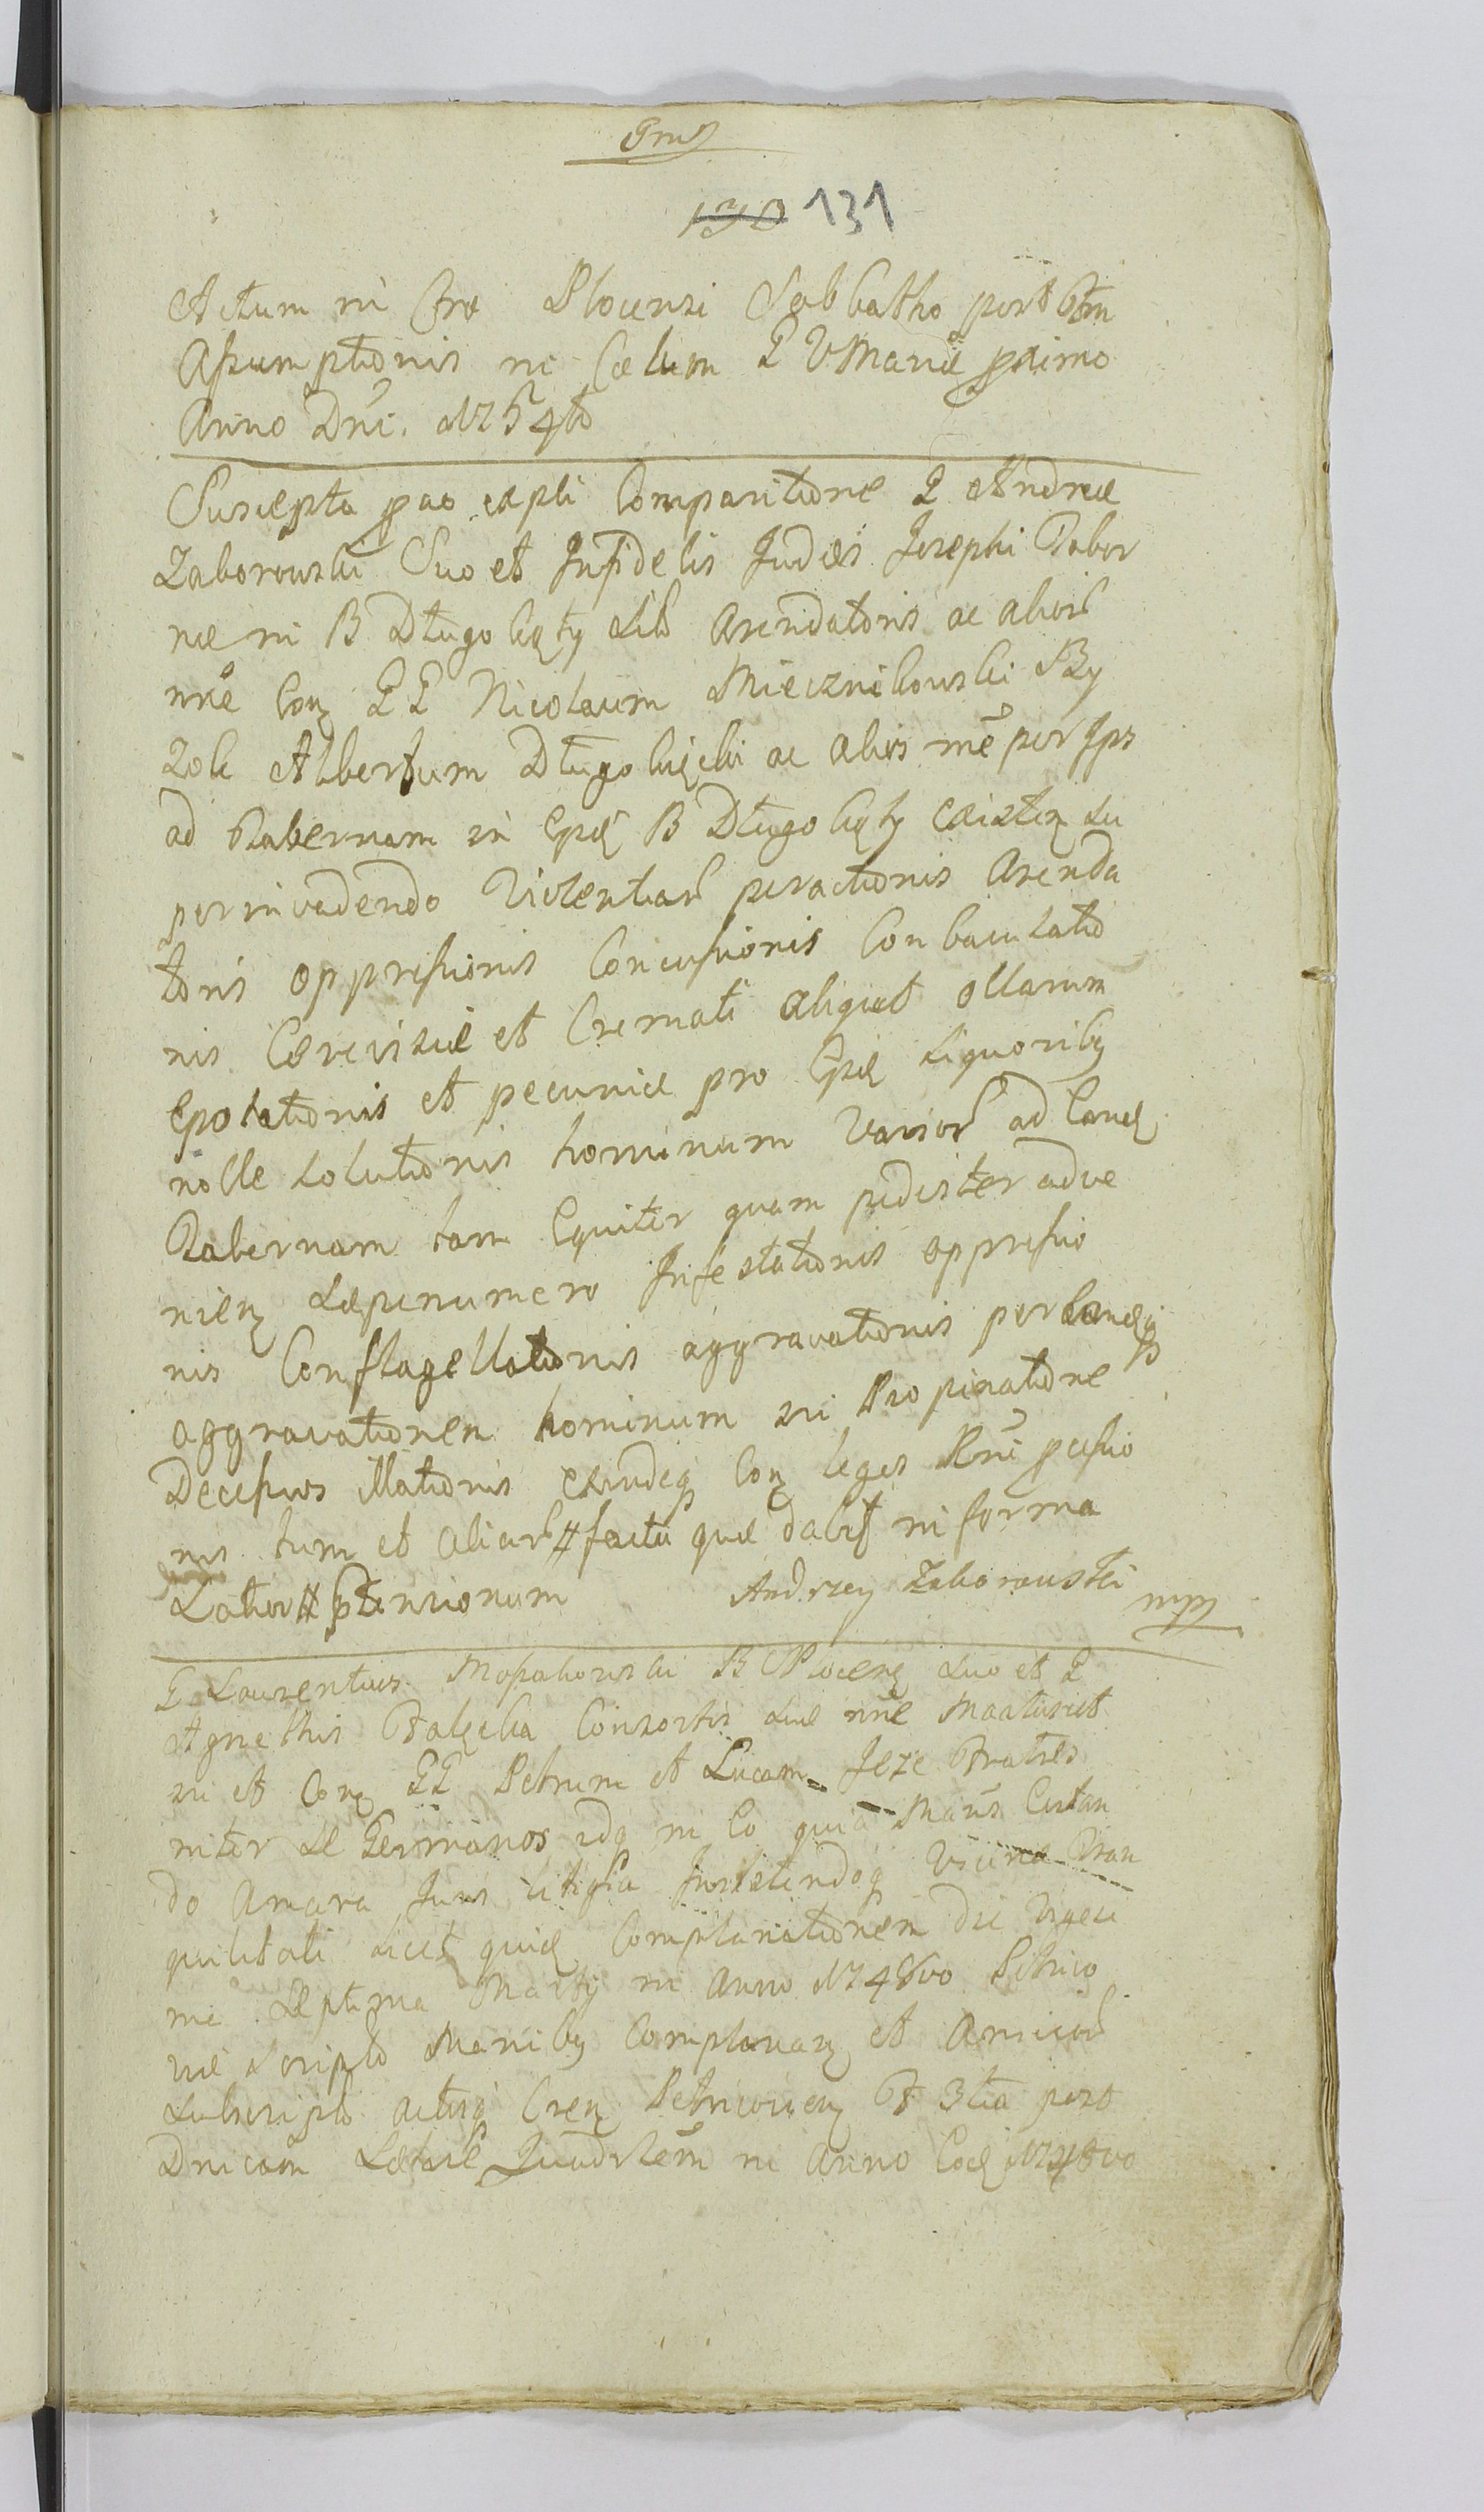 130 131
Actum in Cro Plocensi Sabbatho post Ftm
Assumptionis in Cælum B V Mariæ proximo
Anno Dni. 1754to
Suscepta pro expli Comparitione G Andreæ
Zaborowski Suo et Infidelis Judæi Josephi Taber
næ in B Długokęty sitæ Arendatoris ac alior
nne Con GG Nicolaum Miecznikowski
Albertum Długokęcki ac alios nne per Ips
ad Tabernam in Epæ B Długokęty Existen su
perinvadendo Violentiar peractionis Arenda
toris oppressionis Concussionis Conbaculatio
nis Cerevisiæ et Cremati aliquot ollarum
Epotationis et pecuniæ pro Epæ Liquoribq
nolle solutionis hominum Varior ad Eand
Tabernam tam Equiter quam pedester adve
nien sæpenumero Infestationis oppressio
nis Conflagellationis aggravationis per Eandq
aggravationem hominum in Propinatione
Decessus illationis exindeq Con leges Rni pcessio
nis tum et aliar # facta quæ dabit in forma
Latior # Ptensionum Andrzey Zaborowski mpp
G Laurentius Mopakowski B Plocen suo et G
Agnethis Falęcka Consortis suæ nne Maaturiet
in et Con GG Petrum et Lucam Jeże Fratres
niter se Germanos idq in Eo quia Manen Certan
do Amara Juris litigia Insistendoq Vicinæ Tran
quilitati licet quid Complanationem die Vigesi
ma Septima Martij in Anno 1748vo Petrico
viæ scripto Manibq Complanan et Amicor
subscripto actisq Cren Petricovien F 3tia post
Dnicam Lætare Quadrlem in Anno Eod 1748vo